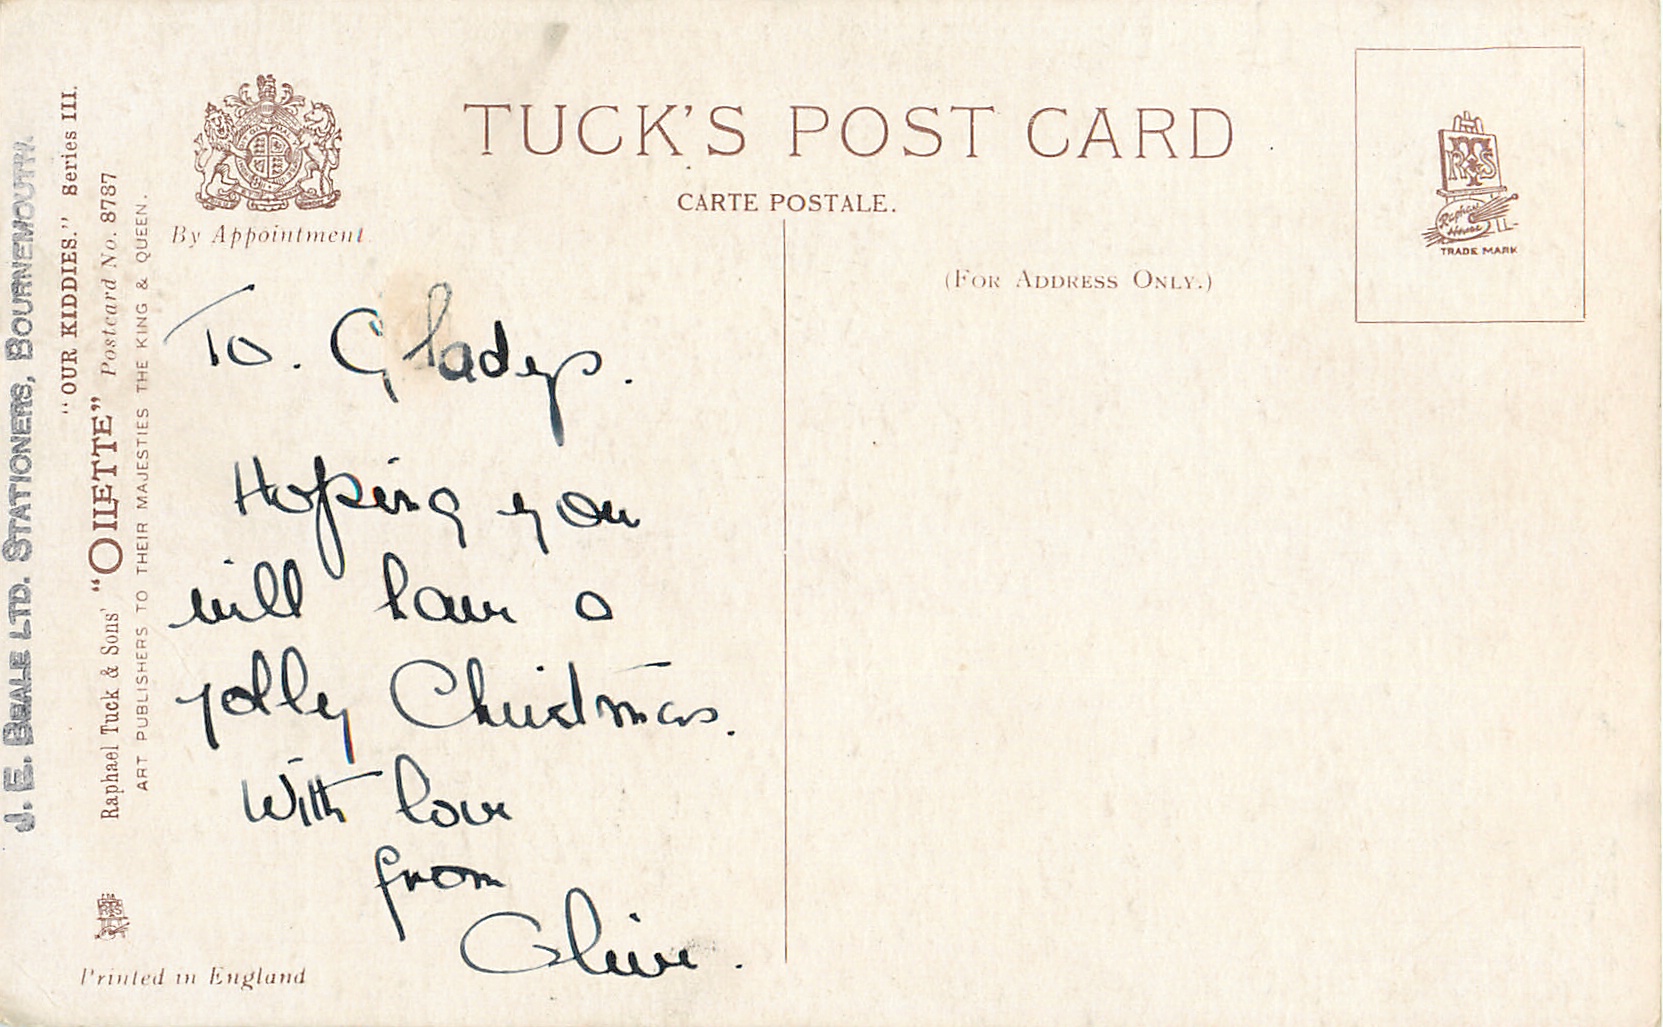 TUCK'S POST CARD
CARTE POSTALE.
(FOR ADDRESS ONLY.)
By Appointment
TRADE MARK
To. Gladys.
Hoping you
will have a
jolly Christmas.
With love
from
Olive.
J. E. BEALE LTD. STATIONERS, BOURNEMOUTH.
"OUR KIDDIES." Series III.
Raphael Tuck & Sons' "OILETTE" Postcard No. 8787
ART PUBLISHERS TO THEIR MAJESTIES THE KING & QUEEN.
Printed in England
Raphael
House